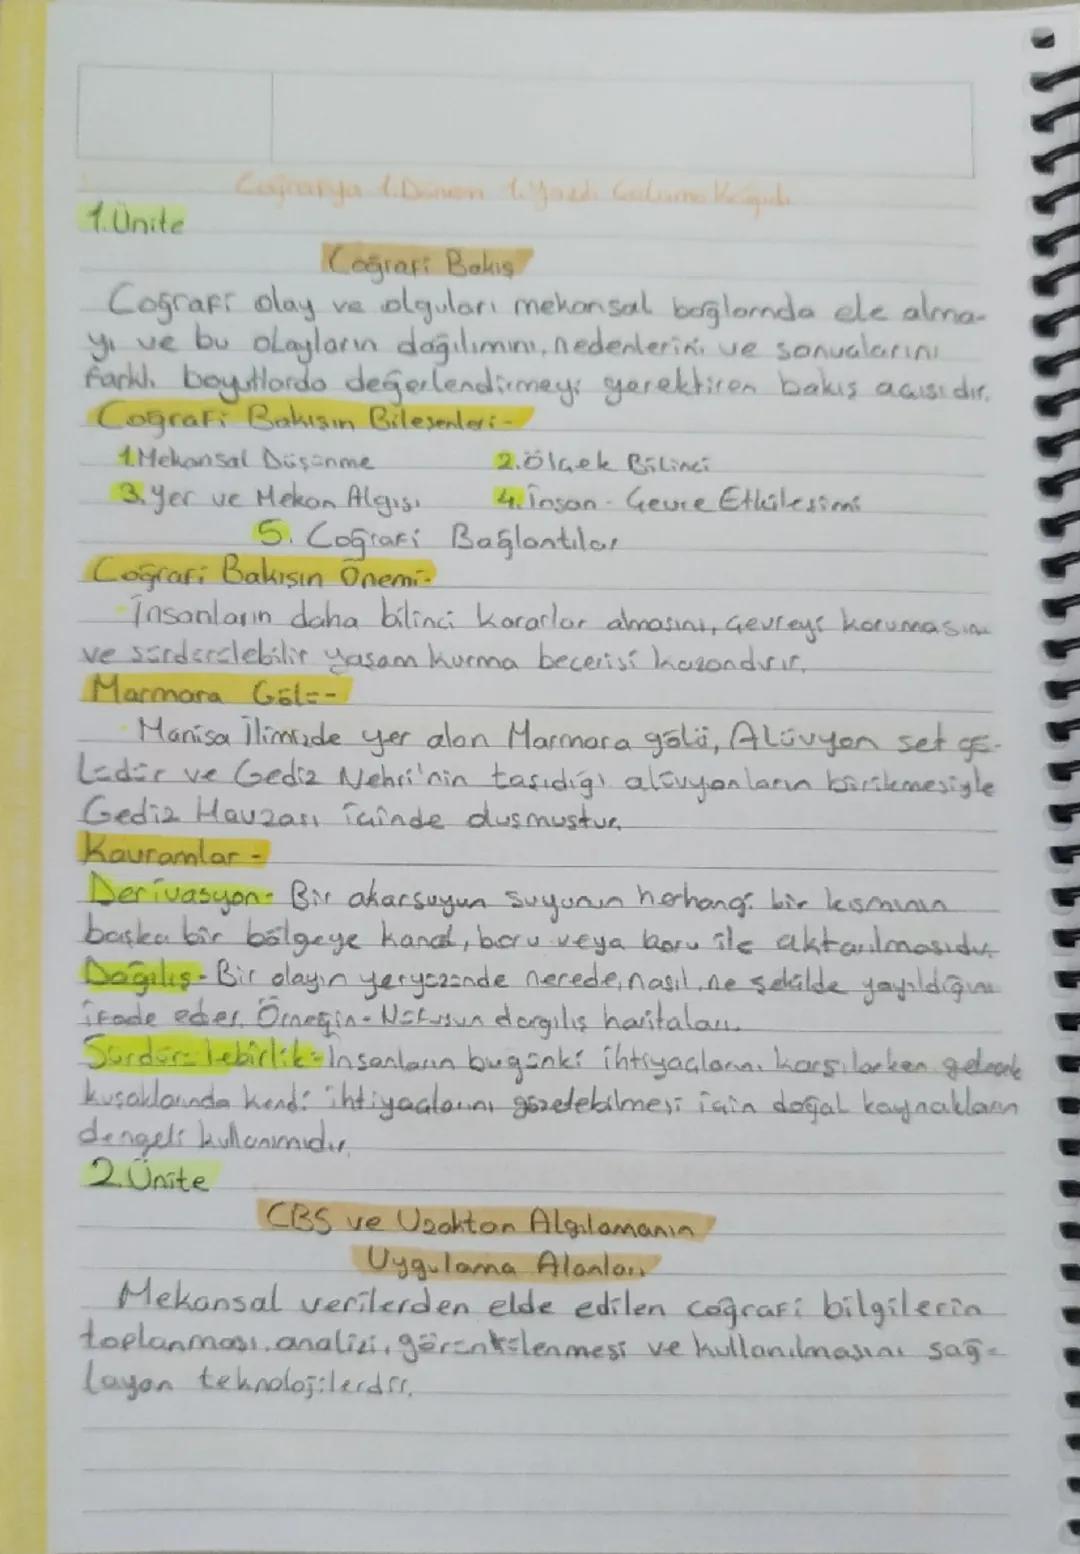 Coğrafya 1.Dönem 1.Yazılı Çalışma Kağıdı
1.Ünite
Coğrafi Bakış
Coğrafi olay ve olguları mekansal bağlamda ele alma-
yı ve bu olayların dağılımını, nedenlerini ve sonuçlarını
farklı boyutlarda değerlendirmeyi gerektiren bakış açısıdır.
Coğrafi Bakışın Bileşenleri-
1.Mekansal Düşünme 2.Ölçek Bilinci
3.Yer ve Mekan Algısı 4.İnsan - Çevre Etkileşimi
5. Coğrafi Bağlantılar
Coğrafi Bakışın Önemi-
İnsanların daha bilinci kararlar almasını, çevreyi korumasını
ve sürdürülebilir yaşam kurma becerisi kazandırır.
Marmara Gölü-
Manisa İlimizde yer alan Marmara gölü, Alüvyon set gö-
lüdür ve Gediz Nehri'nin taşıdığı alüvyonların birikmesiyle
Gediz Havzası içinde oluşmuştur.
Kavramlar -
Derivasyon- Bir akarsuyun suyunun herhangi bir kısmının
başka bir bölgeye kanal, boru veya boru ile aktarılmasıdır.
Dağılış- Bir olayın yeryüzünde nerede, nasıl, ne şekilde yayıldığını
ifade eder. Örneğin- Nüfusun dargılış haritaları.
Sürdürülebirlik- İnsanların bugünkü ihtiyaçlarını karşılarken gelecek
kuşaklarında kendi ihtiyaçlarını gözetebilmesi için doğal kaynakların
dengeli kullanımıdır.
2.Ünite
CBS ve Uzaktan Algılamanın
Uygulama Alanları
Mekansal verilerden elde edilen coğrafi bilgilerin
toplanması, analizi, görüntülenmesi ve kullanılmasını sağ-
layan teknolojilerdir.